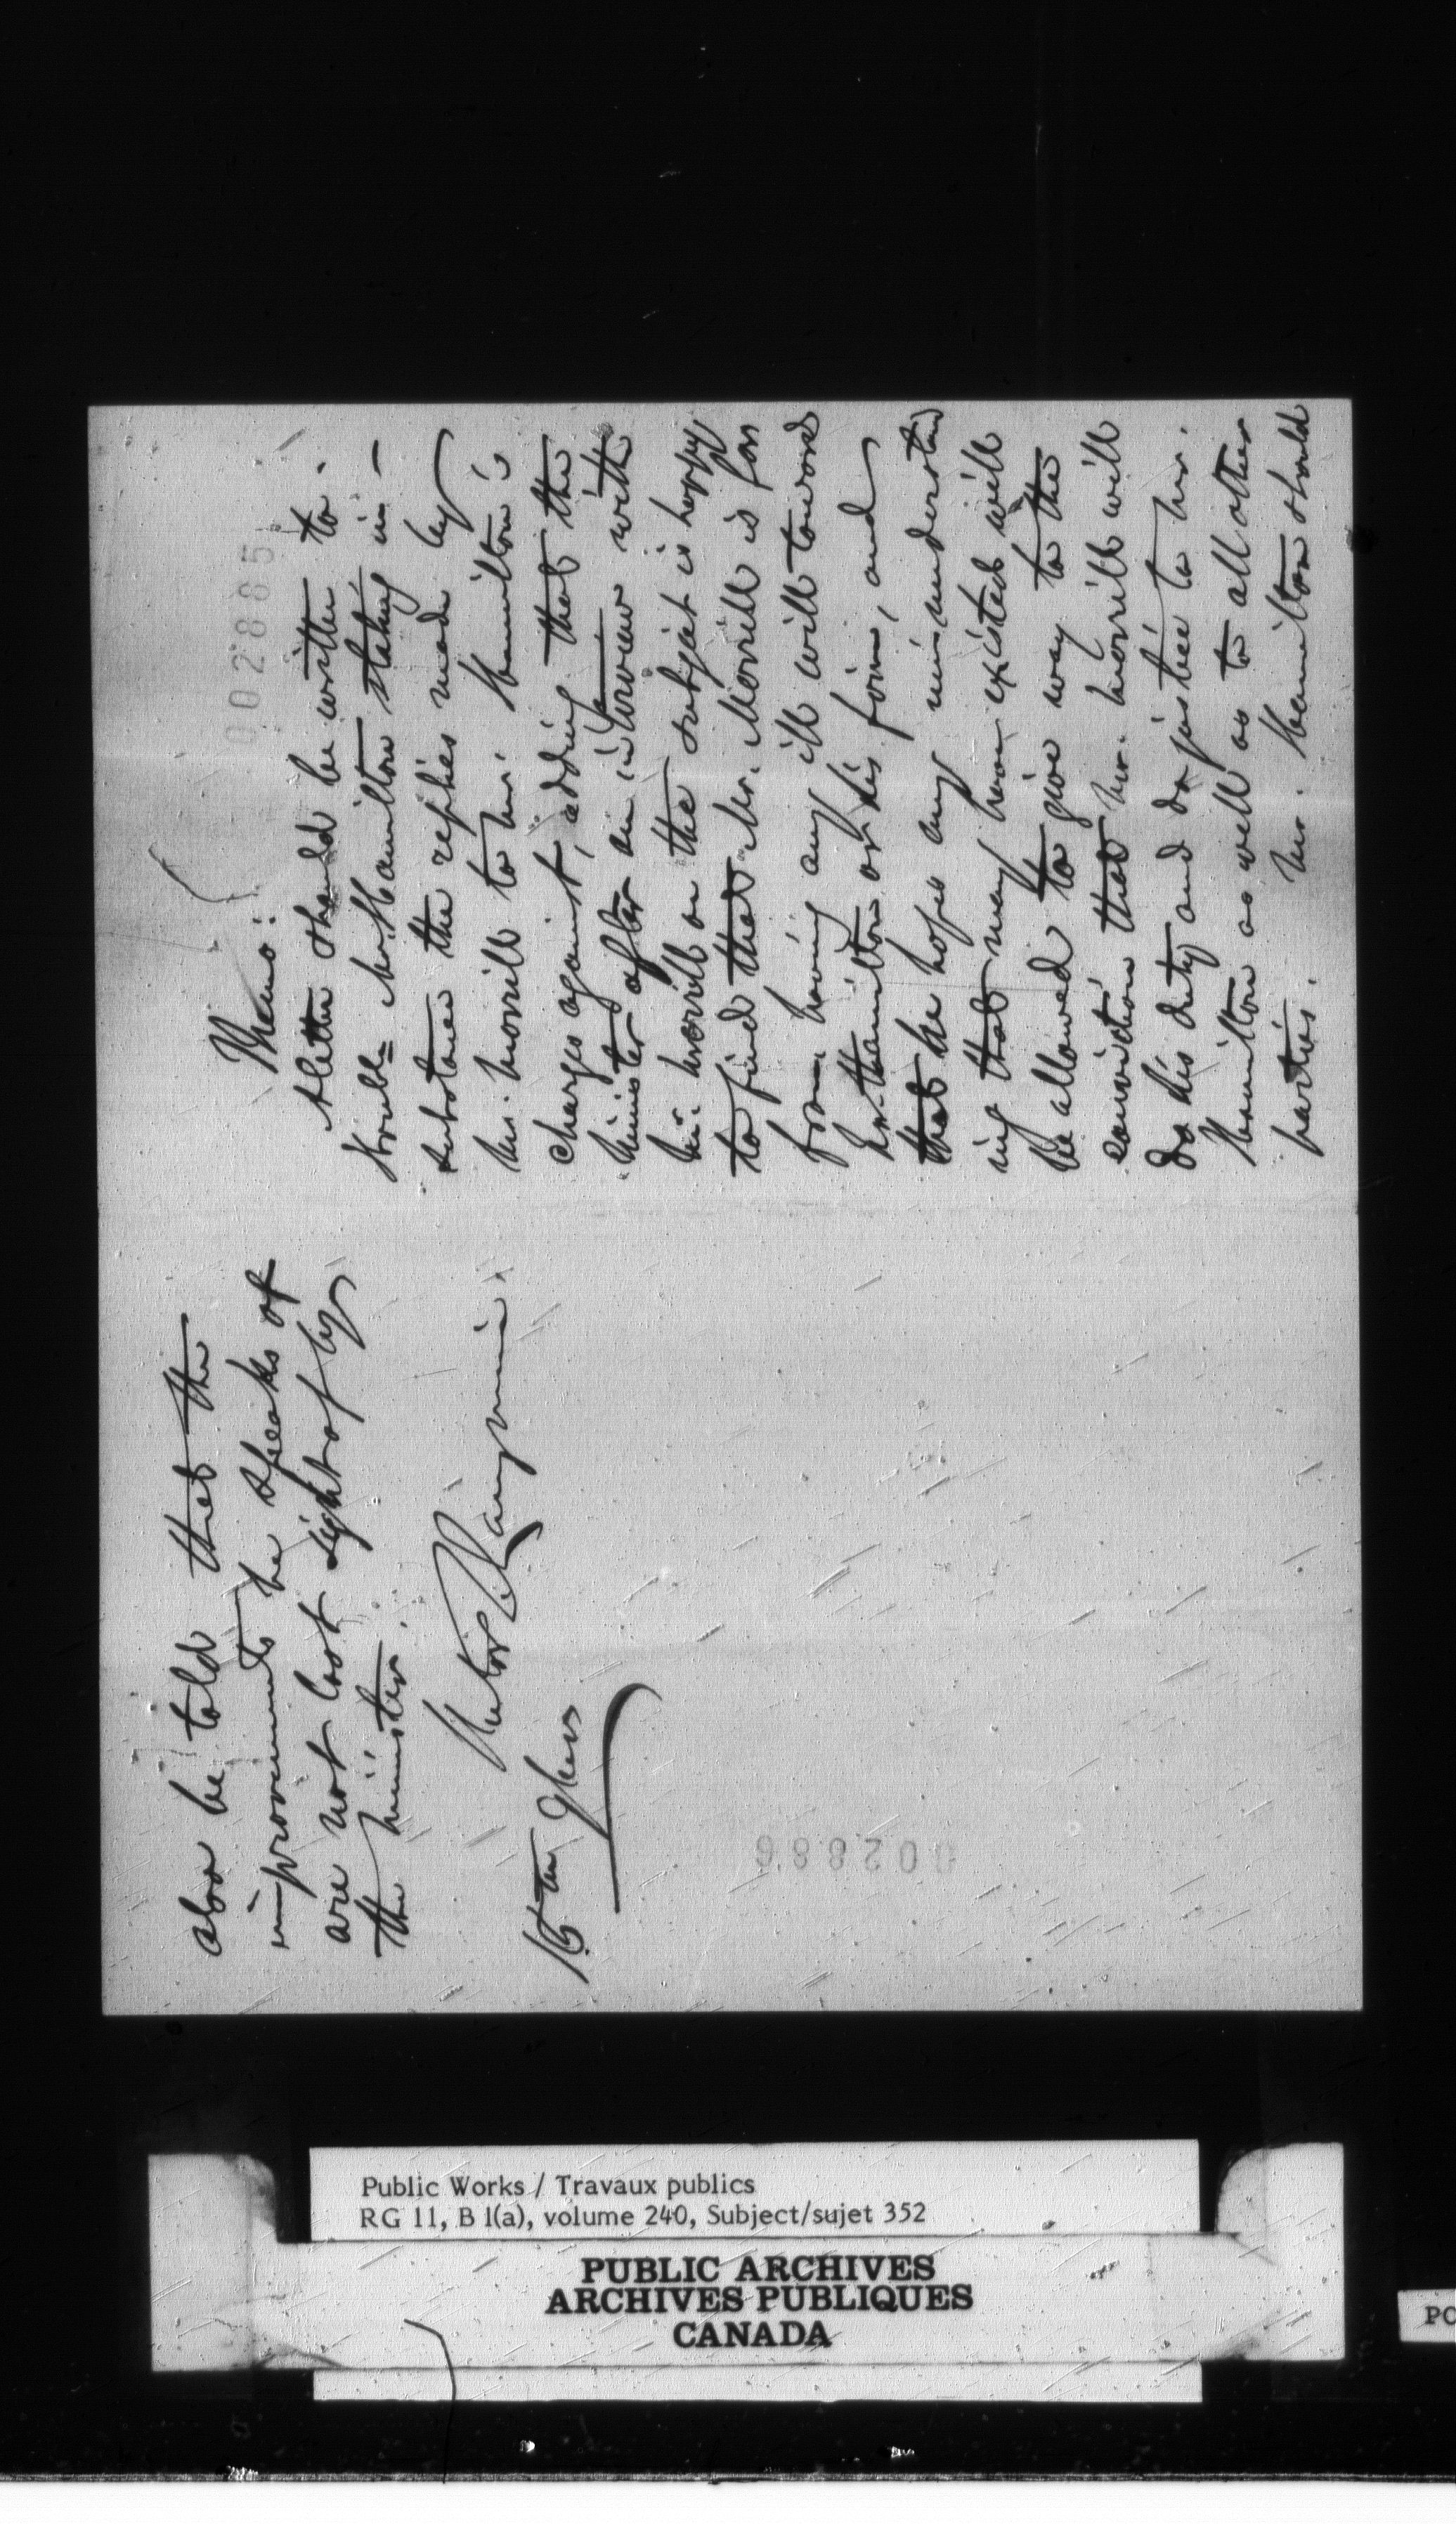 002885
Memo:
A letter should be written to
Honble Mr. Hamilton stating in
substance the replies made by
Mr. Merrill to Mr. Hamilton's
charges against, adding that the
Minister after an interview with
Mr. Merrill on the subject is happy
to find that Mr. Merrill is far
from having any ill will towards
Mr. Hamilton or his firm, and
that he hopes any misunderstand
ing that may have existed will
be allowed to give way to the
conviction that Mr. Merrill will
do his duty and do justice to Mr.
Hamilton as well as to all other
parties. Mr. Hamilton should
also be told that the
improvements he speaks of
are not lost sight of by
the Minister.
Hector L. Langevin
15th 9ber
002886
Public Works / Travaux publics
RG 11, B 1(a), volume 240, Subject/sujet 352
PUBLIC ARCHIVES
ARCHIVES PUBLIQUES
CANADA
PO